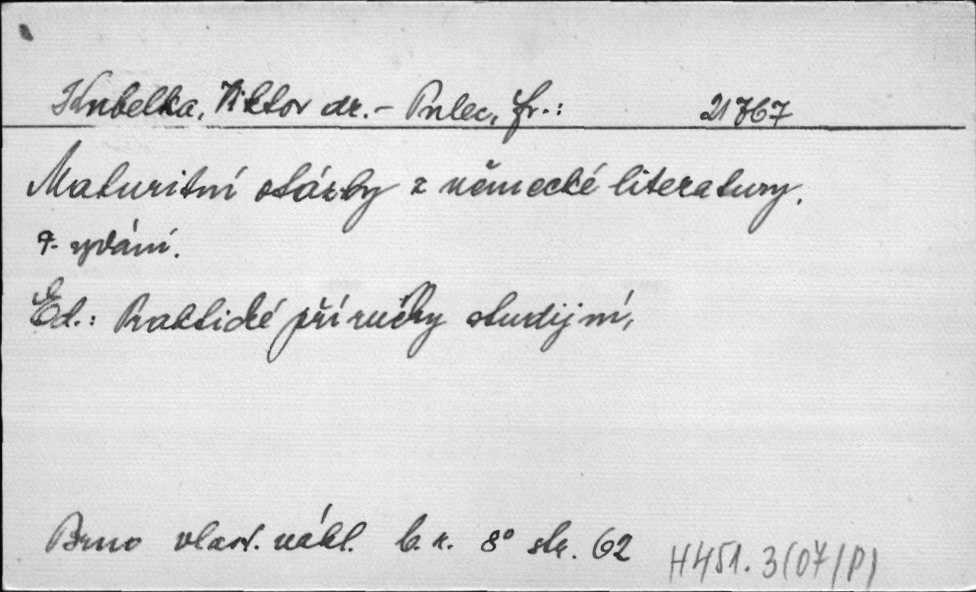 Kubelka, Viktor dr. – Pulec, fr.: 21767
Maturitní otázky z německé literatury.
4. vydání.
Ed.: Praktické příručky studijní,
Brno vlast. nákl. b. r. 8° str. 62
H451.3(07/P)